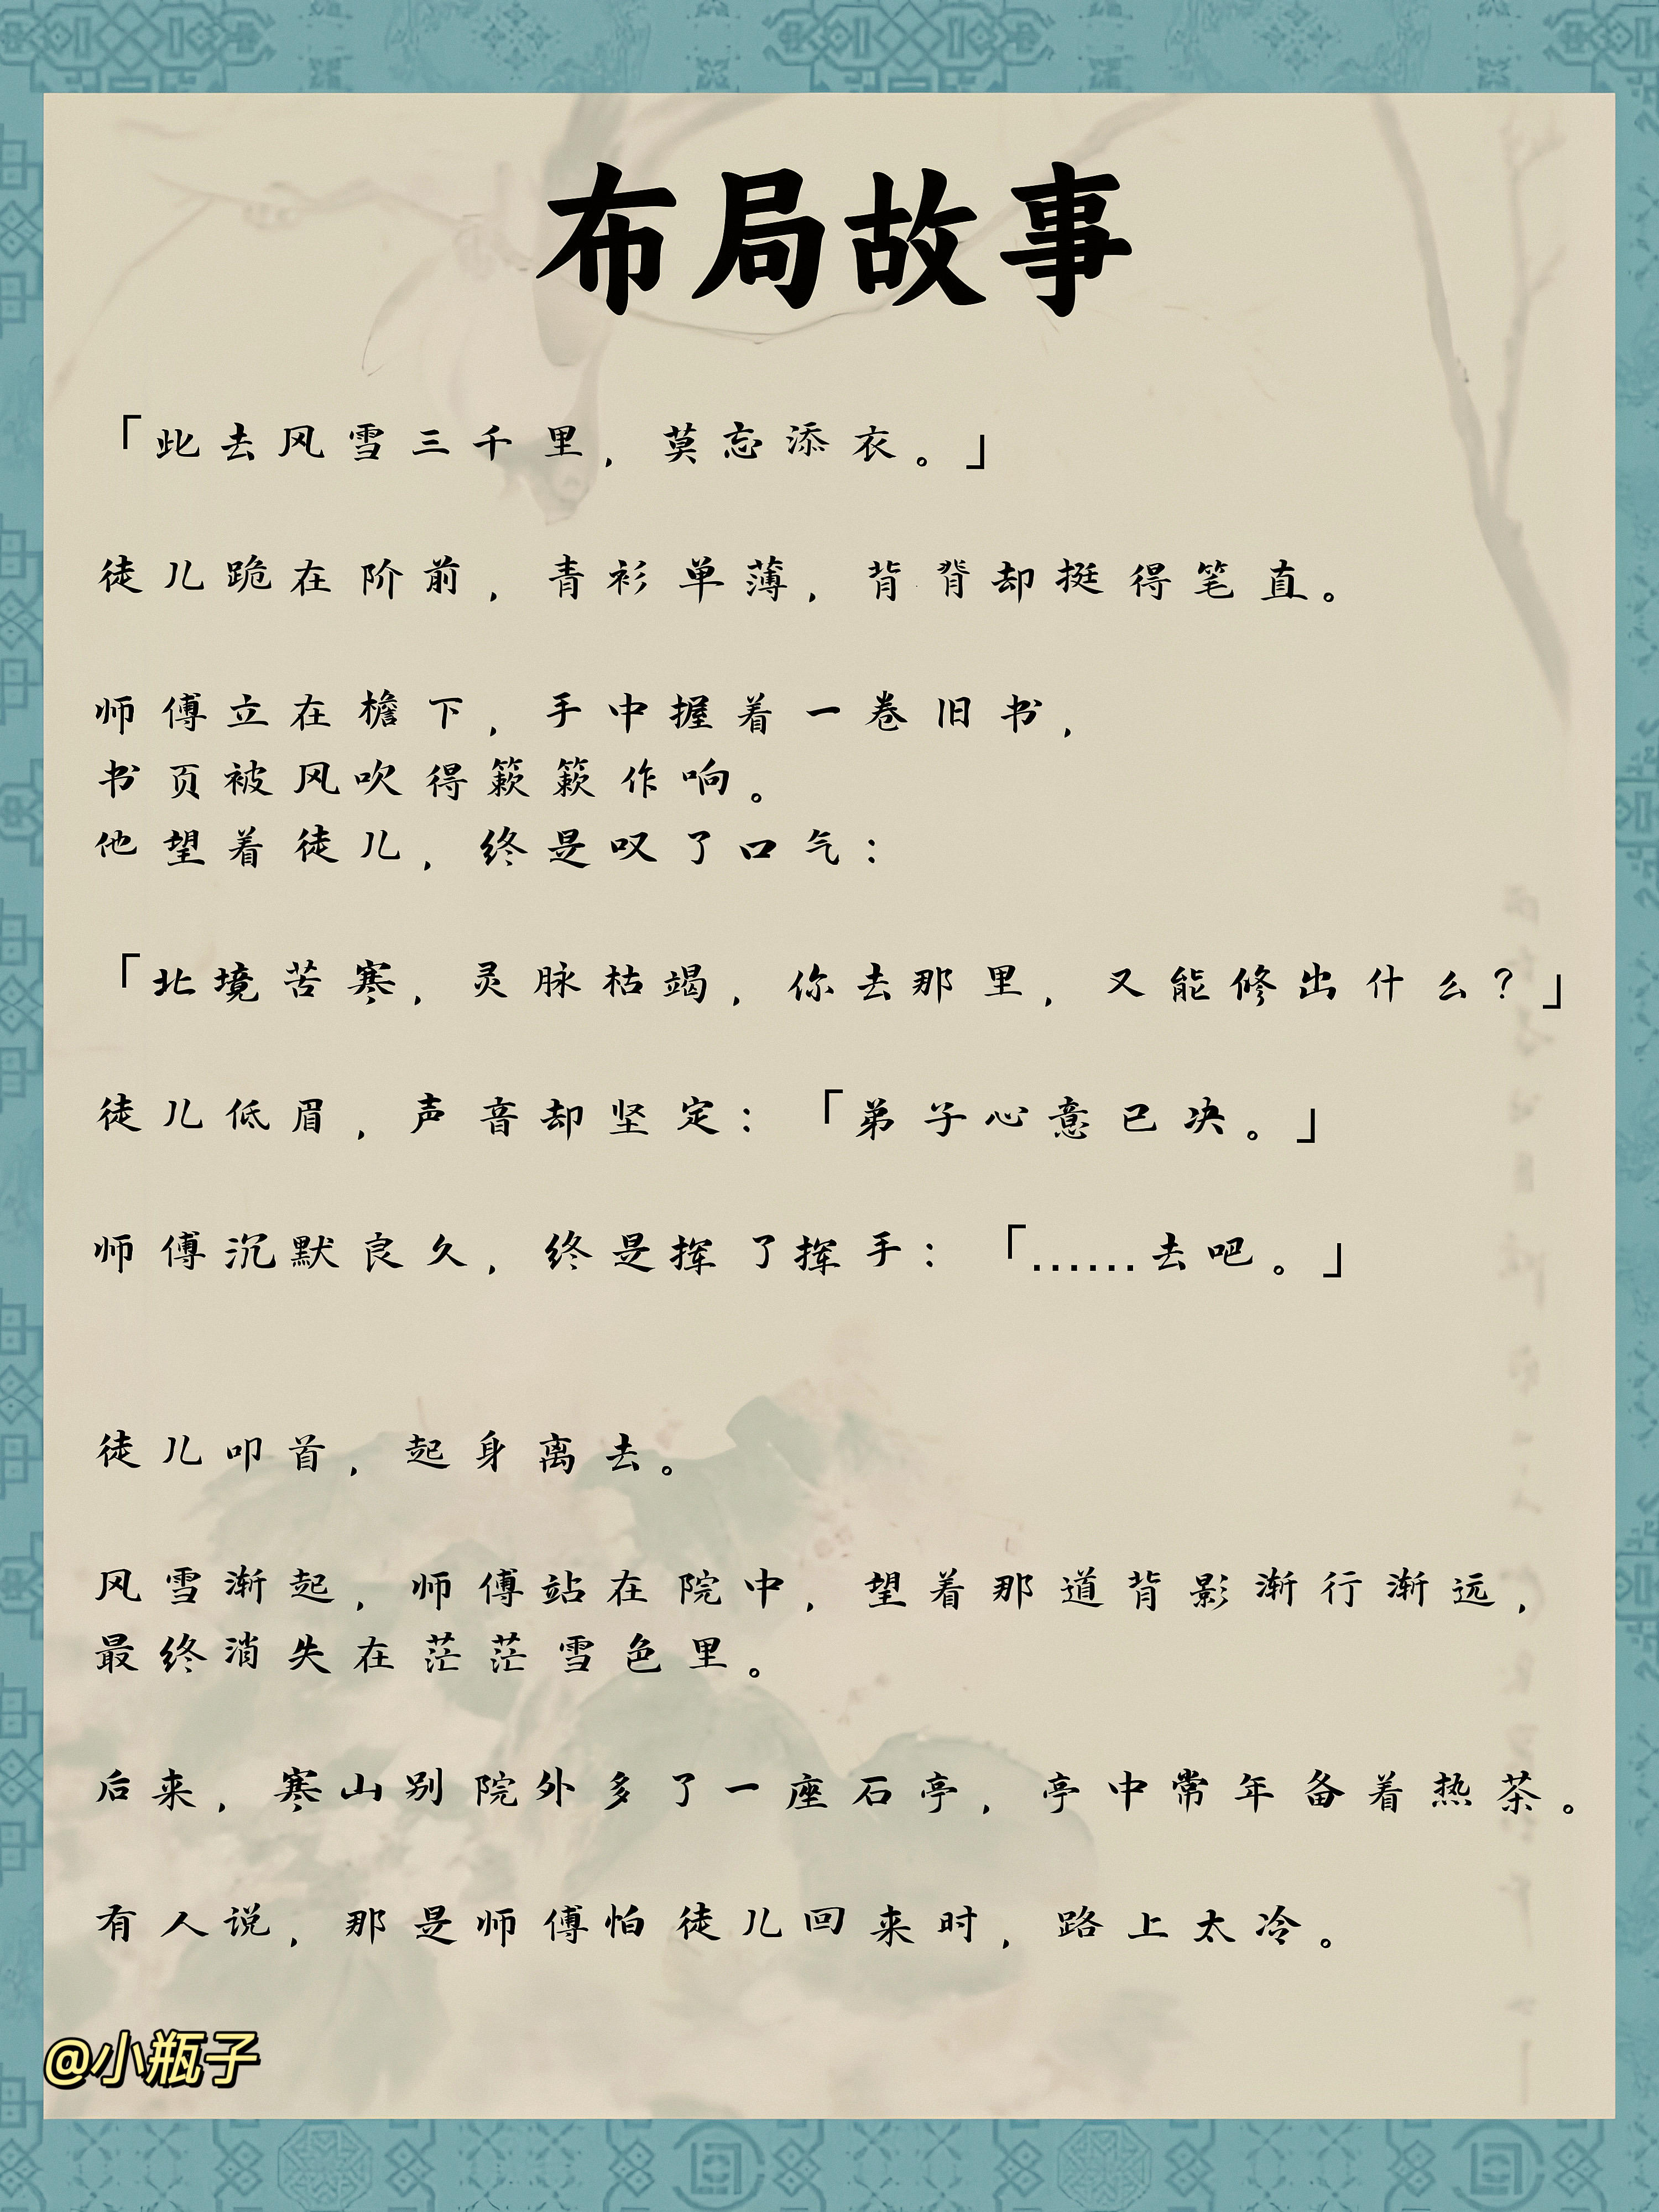 布局故事
「此去风雪三千里，莫忘添衣。」
徒儿跪在阶前，青衫单薄，背脊却挺得笔直。
师傅立在檐下，手中握着一卷旧书，
书页被风吹得簌簌作响。
他望着徒儿，终是叹了口气：
「北境苦寒，灵脉枯竭，你去那里，又能修出什么？」
徒儿低眉，声音却坚定：「弟子心意已决。」
师傅沉默良久，终是挥了挥手：「……去吧。」
徒儿叩首，起身离去。
风雪渐起，师傅站在院中，望着那道背影渐行渐远，
最终消失在茫茫雪色里。
后来，寒山别院外多了一座石亭，亭中常年备着热茶。
有人说，那是师傅怕徒儿回来时，路上太冷。
@小瓶子